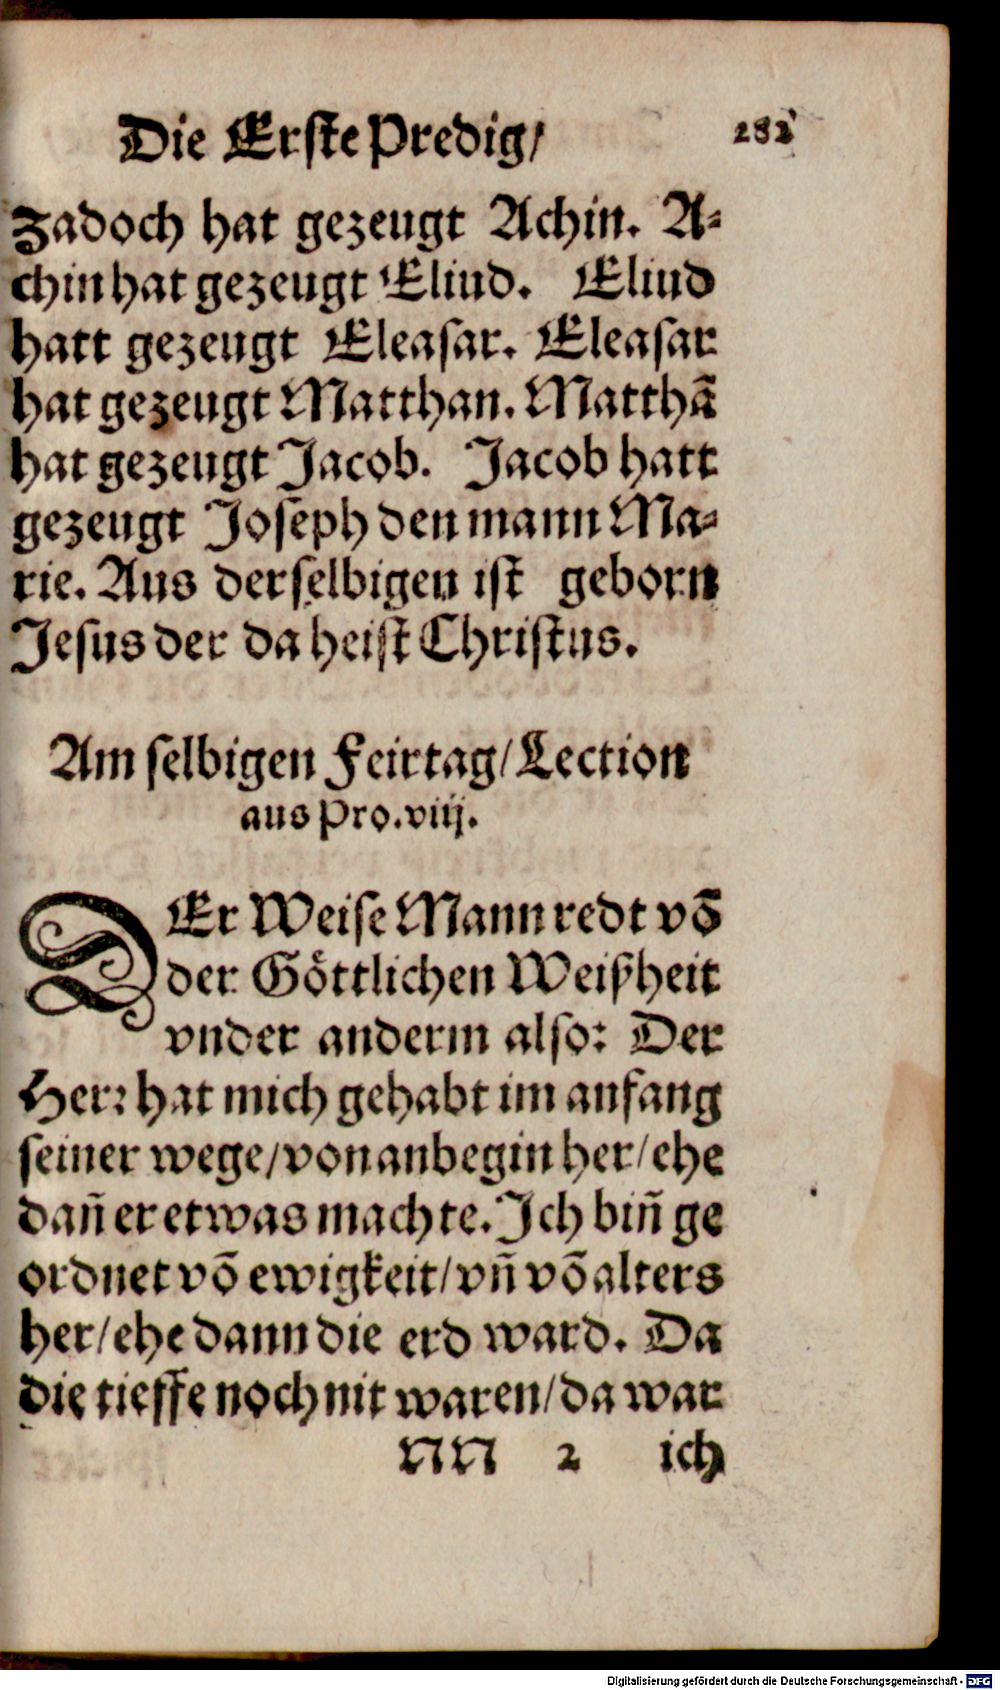 Die Erste Predig/ 282
Zadoch hat gezeugt Achin. A⸗
chin hat gezeugt Eliud. Eliud
hatt gezeugt Eleasar. Eleasar
hat gezeugt Matthan. Matthā
hat gezeugt Jacob. Jacob hatt
gezeugt Joseph den mann Ma⸗
rie. Aus derselbigen ist geborn
Jesus der da heist Christus.
Am selbigen Feirtag/ Lection
aus Pro. viij.
DEr Weise Mann redt võ
der Göttlichen Weißheit
vnder anderm also: Der
Herr hat mich gehabt im anfang
seiner wege/ von anbegin her/ ehe
dañ er etwas machte. Ich biñ ge
ordnet võ ewigkeit/ vñ võ alters
her/ ehe dann die erd ward. Da
die tieffe noch nit waren/ da war
NN 2 ich
Digitalisierung gefördert durch die Deutsche Forschungsgemeinschaft - DFG